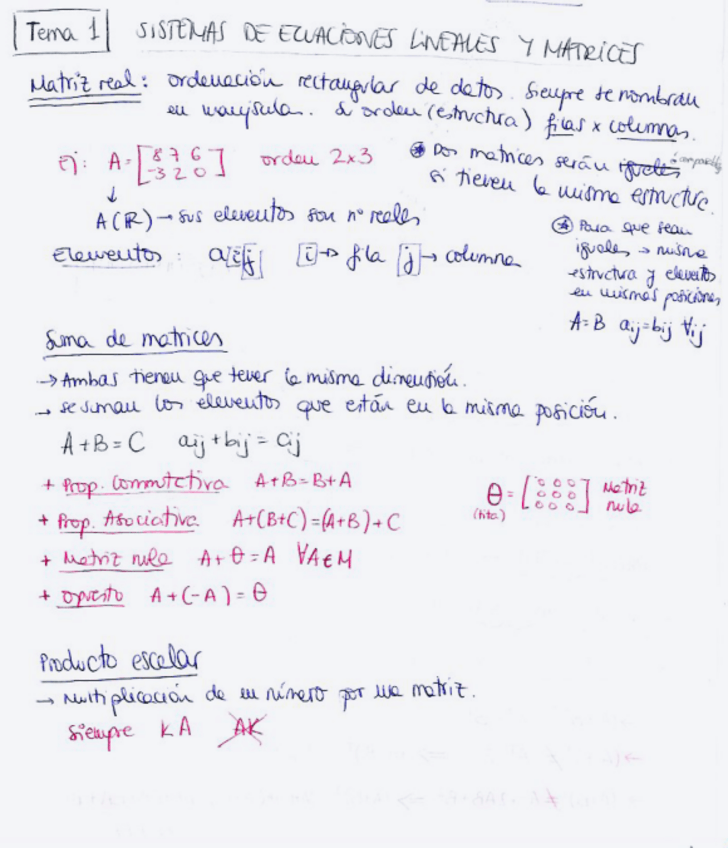 Tema 1 SISTEMAS DE ECUACIONES LINEALES Y MATRICES
Matriz real: ordenación rectangular de datos. Siempre se nombran
en mayúscula. & orden (estructura) filas x columnas.
Ej: A = [8 7 6
-3 2 0] orden 2x3
↓
A(ℝ) → sus elementos son nº reales
Elementos: aij [i]→ fila [j]→ columna
* Dos matrices serán iguales
si tienen la misma estructura.
* Para que sean
iguales → misma
estructura y elementos
en mismas posiciones
A=B aij=bij ∀ij
Suma de matrices
→ Ambas tienen que tener la misma dimensión.
→ se suman los elementos que están en la misma posición.
A+B=C aij+bij=cij
+ Prop. Conmutativa A+B=B+A
+ Prop. Asociativa A+(B+C)=(A+B)+C
+ Matriz nula A+θ=A ∀A∈M
+ opuesto A+(-A)=θ
θ = [0 0 0
0 0 0
0 0 0] Matriz
nula
(tita)
Producto escalar
→ Multiplicación de un número por una matriz.
Siempre KA AK